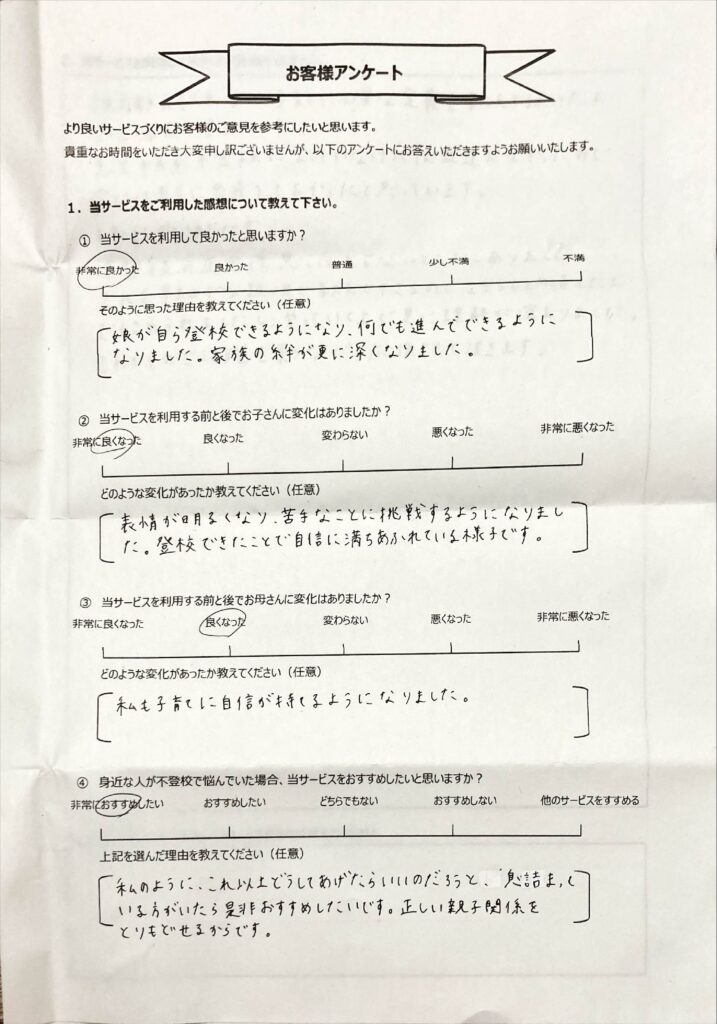 お客様アンケート
より良いサービスづくりにお客様のご意見を参考にしたいと思います。
貴重なお時間をいただき大変申し訳ございませんが、以下のアンケートにお答えいただきますようお願いいたします。
1．当サービスをご利用した感想について教えて下さい。
① 当サービスを利用して良かったと思いますか？
非常に良かった 良かった 普通 少し不満 不満
そのように思った理由を教えてください（任意）
娘が自ら登校できるようになり、何でも進んでできるように
なりました。家族の絆が更に深くなりました。
② 当サービスを利用する前と後でお子さんに変化はありましたか？
非常に良くなった 良くなった 変わらない 悪くなった 非常に悪くなった
どのような変化があったか教えてください（任意）
表情が明るくなり、苦手なことに挑戦するようになりまし
た。登校できたことで自信に満ちあふれている様子です。
③ 当サービスを利用する前と後でお母さんに変化はありましたか？
非常に良くなった 良くなった 変わらない 悪くなった 非常に悪くなった
どのような変化があったか教えてください（任意）
私も子育てに自信が持てるようになりました。
④ 身近な人が不登校で悩んでいた場合、当サービスをおすすめしたいと思いますか？
非常におすすめしたい おすすめしたい どちらでもない おすすめしない 他のサービスをすすめる
上記を選んだ理由を教えてください（任意）
私のように、これ以上どうしてあげたらいいのだろうと、息詰まって
いる方がいたら是非おすすめしたいです。正しい親子関係を
とりもどせるからです。